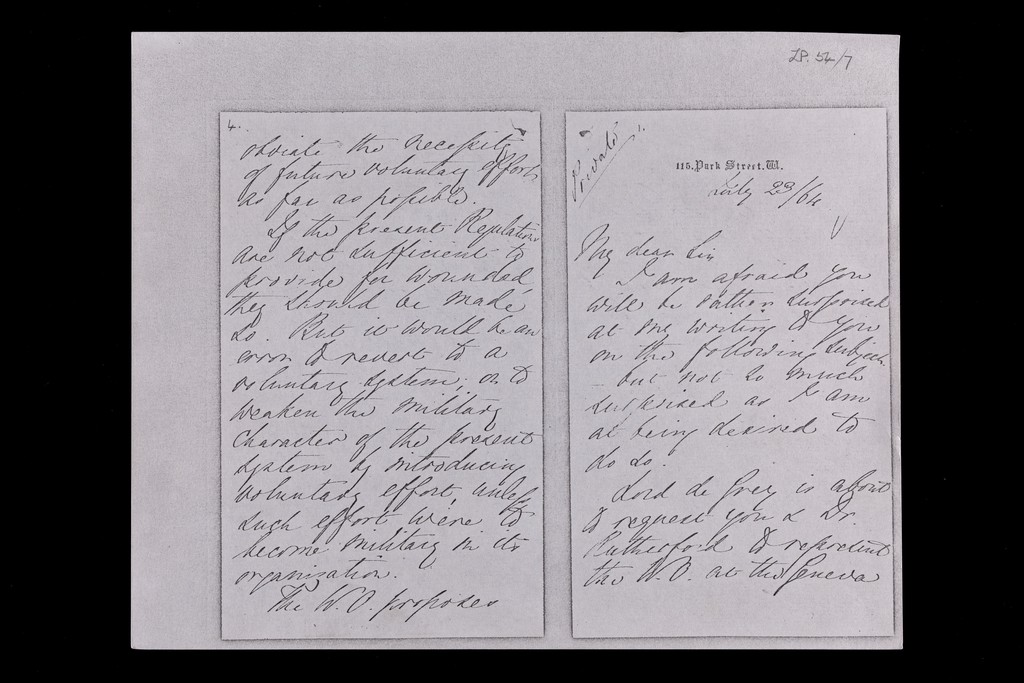 LP. 54/7
4.
obviate the necessity
of future voluntary effort,
as far as possible.
If the present Regulations
are not sufficient to
provide for wounded,
they should be made
so. But it would be an
error to revert to a
voluntary system; or to
weaken the military
character of the present
system by introducing
voluntary effort, unless
such effort were to
become military in its
organisation.
The W.O. proposes
Private
1.
115, Park Street. W.
July 23/64
My dear Sir
I am afraid you
will be rather surprised
at me writing to you
on the following subject.
- but not so much
surprised as I am
at being desired to
do so.
Lord de Grey is about
to request you & Dr.
Rutherford to represent
the W.O. at the Geneva